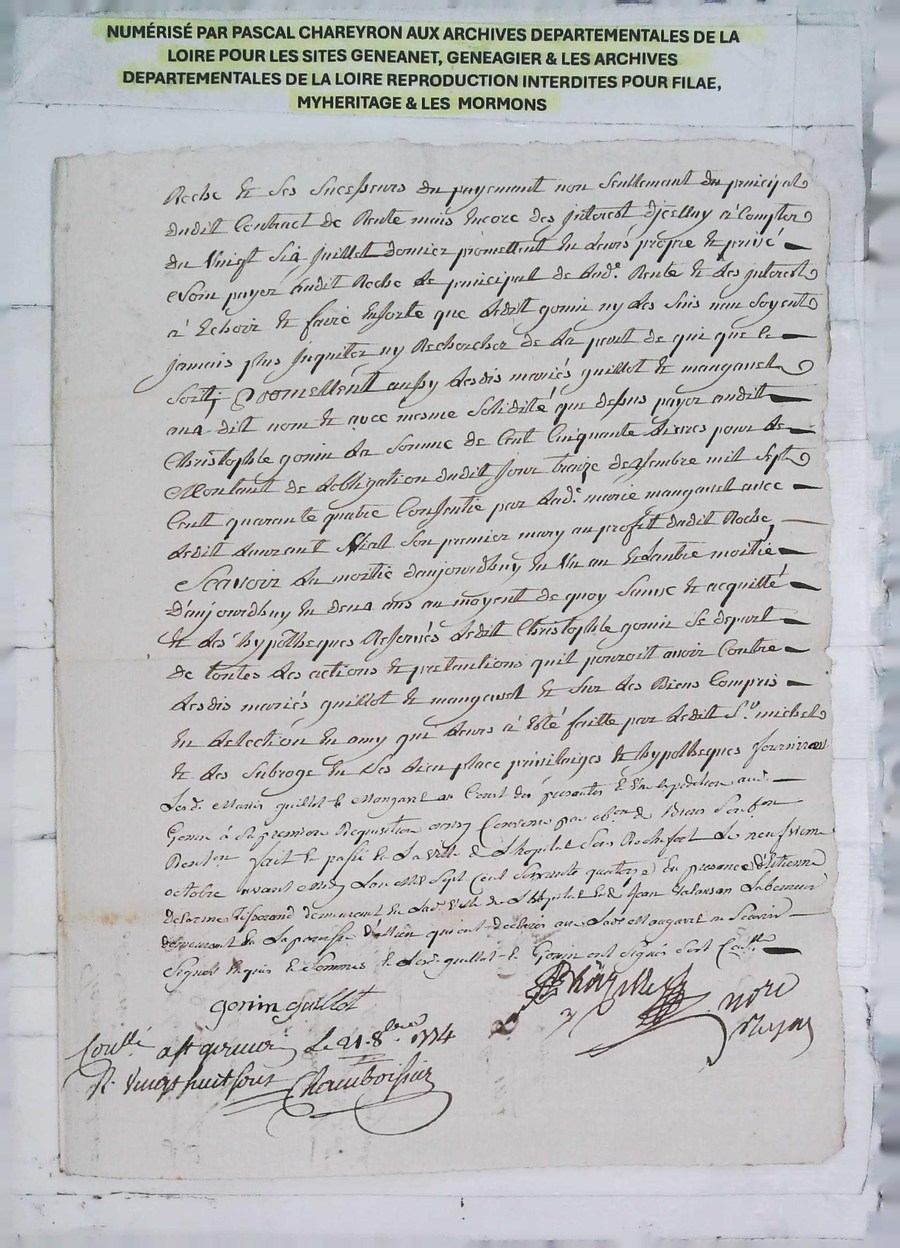 NUMÉRISÉ PAR PASCAL CHAREYRON AUX ARCHIVES DEPARTEMENTALES DE LA
LOIRE POUR LES SITES GENEANET, GENEAGIER & LES ARCHIVES
DEPARTEMENTALES DE LA LOIRE REPRODUCTION INTERDITES POUR FILAE,
MYHERITAGE & LES MORMONS
Roche Et Ses sucesseurs du payement non seullement du principal
dudit Contract de Rente mais Encore des jnterest djcelluy a Compter
du Vingt Six juillet dernier promettent En Leurs propre Et privé
Nom payer audit Roche Le principal de Lade Rente Et Les jnterest
à Echoir Et faire Ensorte que Ledit gonin ny Les Siens n'en Soyent
jamais plus jnquiter ny Rechercher de La part de qui que Ce
Soit, promettent aussy Lesdis mariés guillot Et manganet
aux dit nom Et avec mesme Solidité que dessus payer audit
Christophe gonin La Somme de Cent Cinquante Livres pour Le
Montant de Lobligation dudit jour treize decembre mil Sept
Cent quarante quatre Consentie par Lade marie manganet avec
Ledit Laurant Vial Son premier mary au profit dudit Roche,
Scavoir La moitié daujourdhuy En Un an Et Lautre moitié
D'aujourdhuy En deux ans au moyent de quoy Et acquitté
Et Les hypotheques Reservés Ledit Christophe gonin Se depart
de toutes Les actions Et pretentions quil pouroit avoir Contre
Lesdis mariés guillot Et manganet Et Sur Les Biens Compris
En Lelection En amy qui Leurs à Esté faitte par Ledit Sr michel
Et Les Subroge En Ses Lieu place privilaiges Et hypotheques fourniront
Lesd. Mariés guillot Et Manganet au Coust des presentes Et Une Expedition aud.
Gonin à Sa premiere Requisition ainsy Convenu par
fait Et passé En La Ville de Lhopital Sous Rochefort Le neufvieme
octobre avant midy Lan Mil Sept Cent Soixante quatorze En presance d'Etienne
demeurant En Lad. Ville de Lhopital Et de Jean
demeurant En La paroisse qui ont declarés au Lade Manganet ne Scavoir
Signer Enquis Et Sommés Led. guillot Et Gonin ont Signés
gonin guillot
nore
Royal
Conllé a Le 21 8bre 1774
R. Vingt huit Sous